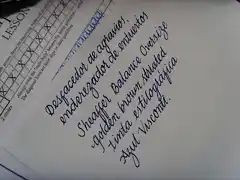 LESSON
Desfacedor de agravios,
enderezador de entuertos
Sheaffer Balance Oversize
golden brown striated
Tinta estilográfica
Azul Visconti.